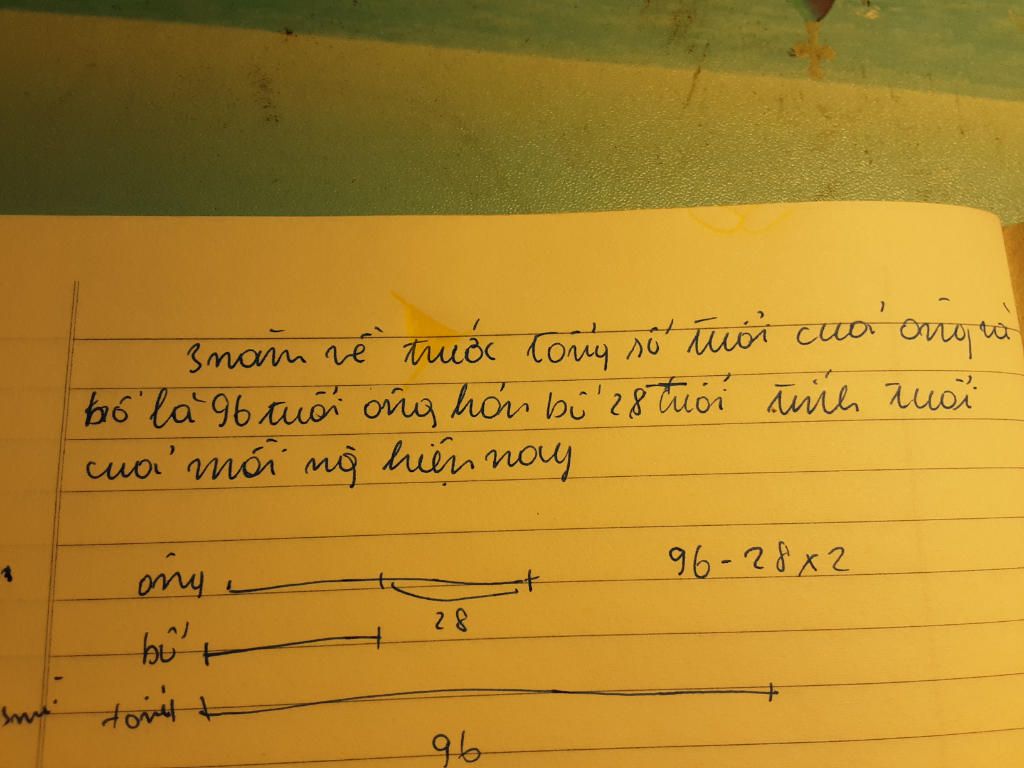 3 năm về trước tổng số tuổi của ông và
bố là 96 tuổi ông hơn bố 28 tuổi tính tuổi
của mỗi ng hiện nay
ông 96 - 28 x 2
28
bố
tổng
96